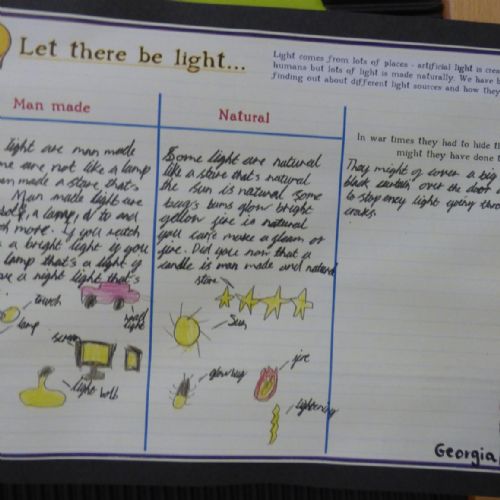 Let there be light...
Light comes from lots of places - artificial light is crea
humans but lots of light is made naturally. We have b
finding out about different light sources and how they
Man made
light are man made
me are not like a lamp
man made a store that's
Man made light are
a lamp, a tv and
ch more. If you
a bright light if you
lamp that's a light if
a night light that's
touch
lamp
light
light bolb
Natural
Some light are natural
like a stare that's natural
the sun is natural some
bugs bums glow bright
yellow fire is natural
you can't make a gleam or
fire. Did you now that a
candle is man made and natural
stare
sun
glowbug
fire
lightening
In war times they had to hide th
might they have done t
They might of cover a big
black curtain over the door
to stop eney light going thro
craks.
Georgia